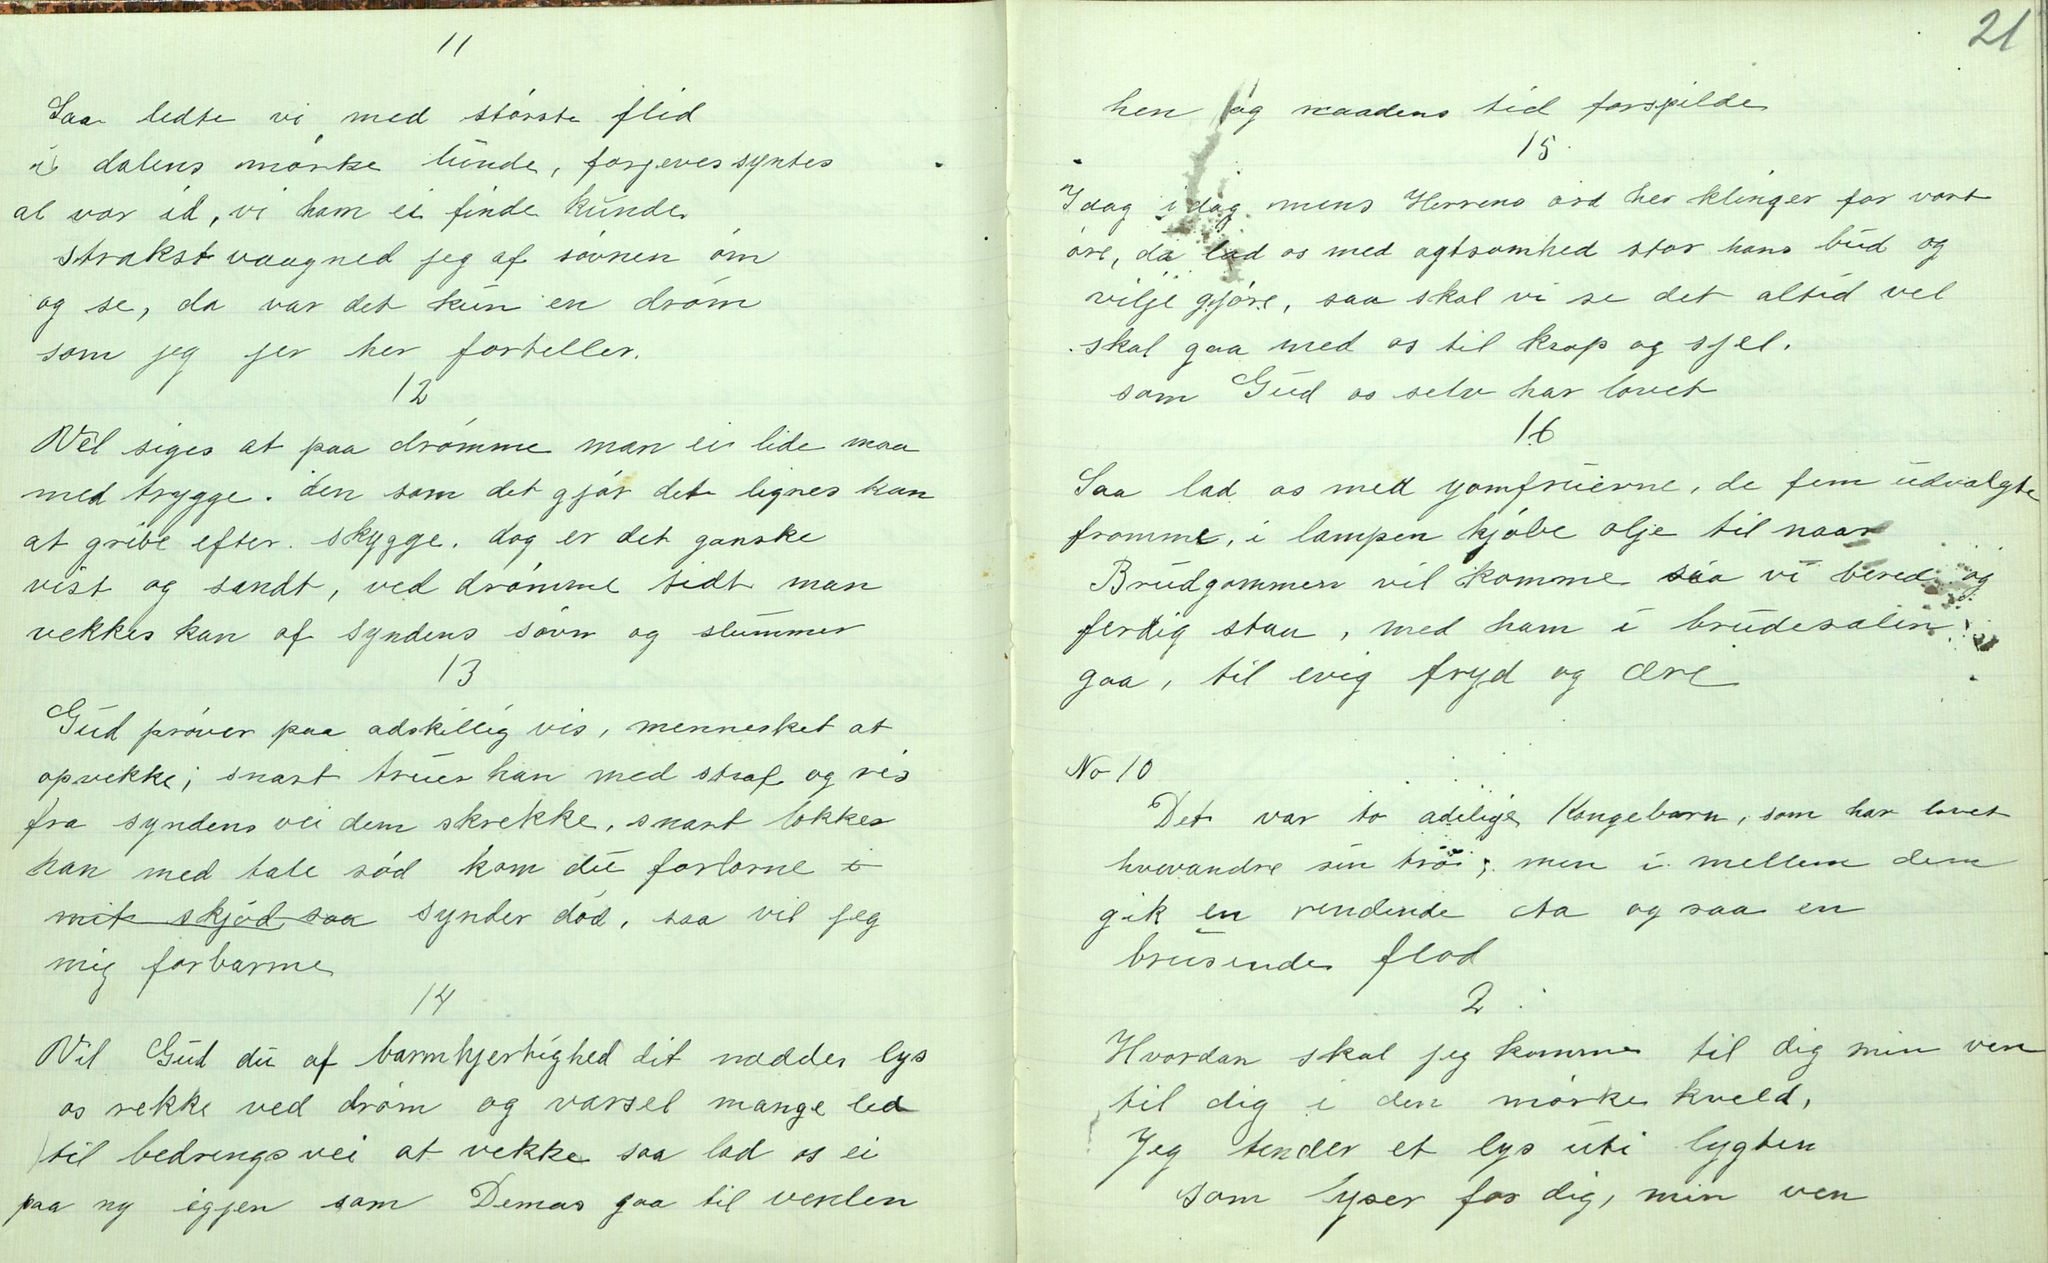 11
Saa ledte vi med störste flid
i dalens mörke lunde, forjeves syntes
al vor id, vi ham ei finde kunde
strakst vaagned jeg af sövnen öm
og se, da var det kun en dröm
som jeg jer her forteller.
12
Vel siges at paa drömme man ei lide maa
med trygge. den som det gjör det lignes kan
at gribe efter. skygge. dog er det ganske
vist og sandt, ved drömme tidt man
vekkes kan af syndens sövn og slummer
13
Gud pröver paa adskillig vis, mennesket at
opvekke; snart truer han med straf og ris
fra syndens vei dem skrekke, snart lokker
han med tale söd kom du forlorne i
mit skjöd saa synder död, saa vil jeg
mig forbarme
14
Vil Gud du af barmhjertighed dit naddes lys
os rekke ved dröm og varsel mange led
til bedrings vei at vekke saa lad os ei
paa ny igjen som Demas gaa til verden
21
hen og naadens tid forspilde
15
I dag i dag mens Herrens ord her klinger for vort
öre, da lad os med agtsomhed stor hans bud og
vilje gjöre, saa skal vi se det altid vel
skal gaa med os til krop og sjel.
som Gud os selv har lovet
16
Saa lad os med yomfruerne, de fem udvalgte
fromme, i lampen kjöbe olje til naar
Brudgommen vil komme saa vi bered og
ferdig staa, med ham i brudesalen
gaa, til evig fryd og ære
No 10
Det var to adelige Kongebarn, som har lovet
hverandre sin tro; men i mellem dem
gik en rendende aa og saa en
brusende flod
2
Hvordan skal jeg komme til dig min ven
til dig i den mörke kveld,
Jeg tender et lys uti lygten
som lyser for dig, min ven